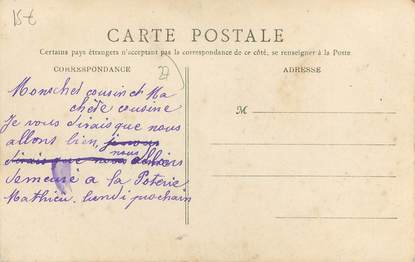 15€
CARTE POSTALE
Certains pays étrangers n'acceptant pas la correspondance de ce côté, se renseigner à la Poste
CORRESPONDANCE
27
ADRESSE
M
Monschet cousin et Ma
chète cousine
Je vous dirais que nous
allons bien, je vous
dirais que nous allons
nous
demeuré a la Poterie
Mathieu. lundi prochain